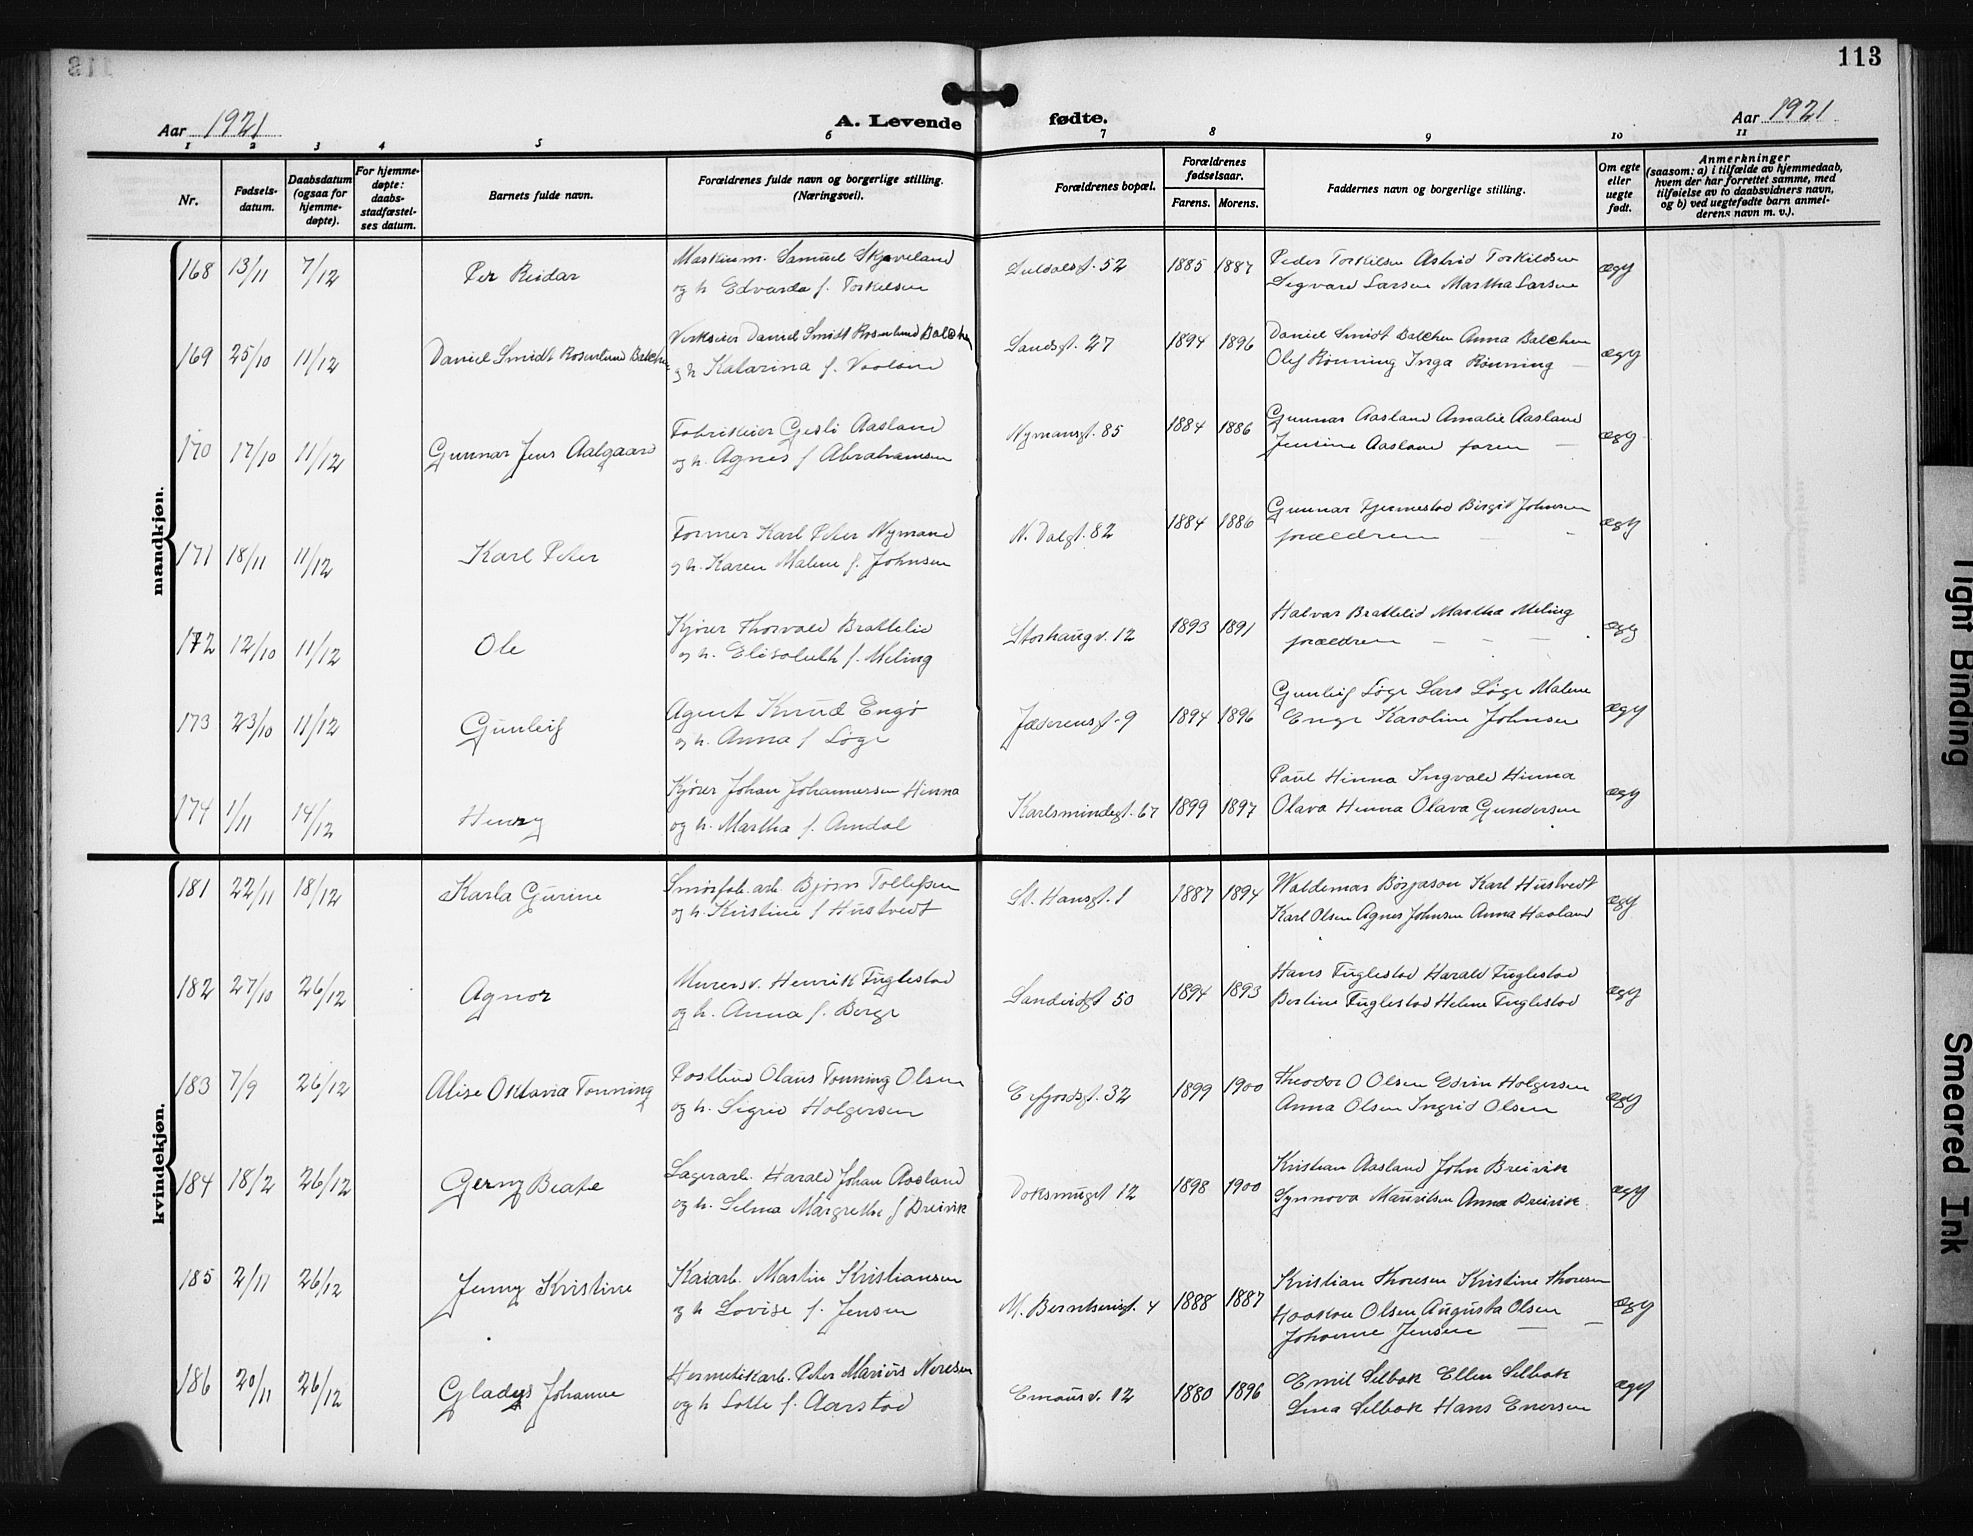 113
Aar 1921
A. Levende fødte.
Aar 1921
1 2 3 4 5 6 7 8 9 10 11
Nr.
Fødsels-
datum.
Daabsdatum
(ogsaa for
hjemme-
døpte).
For hjemme-
døpte:
daabs-
stadfæstel-
ses datum.
Barnets fulde navn.
Forældrenes fulde navn og borgerlige stilling.
(Næringsvei).
Forældrenes bopæl.
Forældrenes
fødselsaar.
Farens. Morens.
Faddernes navn og borgerlige stilling.
Om egte
eller
uegte
født.
Anmerkninger
(saasom: a) i tilfælde av hjemmedaab,
hvem der har forrettet samme, med
tilføielse av to daabsvidners navn,
og b) ved uegtefødte barn anmel-
derens navn m. v.).
mandkjøn.
168 13/11 7/12 Per Reidar
Maskinm. Samuel Skjæveland
og h. Edvarda f. Torkelsen
Suldalsgt. 52 1885 1887
Peder Torkelsen Astrid Torkildsen
Sigvard Larsen Martha Larsen
ægt
169 25/10 11/12 Daniel Smidt Rosenlund Balchen
Verkseier Daniel Smidt Rosenlund Balchen
og h. Katarina f.
Sandsgt. 27 1894 1896
Daniel Smidt Balchen Anna Balchen
Olef Rönning Inga Rönning —
ægt
170 17/10 11/12 Gunnar Jens Aalgaard
Fabrikeier Gesli Aasland
og h. Agnes f. Abrahamsen
Nymansgt. 85 1884 1886
Gunnar Aasland Amalie Aasland
Jensine Aasland faren —
ægt
171 18/11 11/12 Karl Peter
Former Karl Peter Nymand
og h. Karen Malene f. Johnsen
N. Dalgt. 82 1884 1886
Gunnar Tjermestad Birgit Johnsen
forældrene — -
ægt
172 12/10 11/12 Ole
Kjører Thorvald Brattelid
og h. Elisabeth f. Meling
Storhaugv. 12 1893 1891
Halvar Brattelid Martha Meling
forældrene — — - —
ægt
173 23/10 11/12 Gunleif
Agent Knud Engø
og h. Anna f. Løge
Jæderensgt. 9 1894 1896
Gunleif Løge Lars Løge Malene
Enge Karoline Johnsen
ægt
174 1/11 14/12 Henry
Kjører Johan Johannessen Hinna
og h. Martha f. Amdal
Karlsmindegt. 67 1899 1897
Paul Hinna Ingvald Hinna
Olava Hinna Olava Gundersen
ægt
kvindekjøn.
181 22/11 18/12 Karla Gurine
Smørfab. arb. Bjørn Tollefsen
og h. Kristine f. Hustvedt
St. Hansgt. 1 1887 1894
Waldemar Börjason Karl Hustvedt
Karl Olsen Agnes Johnsen Anna Haaland
ægt
182 27/10 26/12 Agnor
Murersv. Henrik Fuglestad
og h. Anna f. Berge
Sandvidgt 50 1894 1893
Hans Fuglestad Harald Fuglestad
Bertine Fuglestad Helene Fuglestad
ægt
183 7/9 26/12 Alise Oktavia Tonning
Postbud Olaus Tonning Olsen
og h. Sigrid Holgersen
Eifjordsgt. 32 1899 1900
Theodor O Olsen Edvin Holgersen
Anna Olsen Ingrid Olsen
ægt
184 18/2 26/12 Gerny Beate
Lagerarb. Harald Johan Aasland
og h. Selma Margrethe f. Breivik
Doksmugt 12 1898 1900
Kristian Aasland John Breivik
Synnova Mauritsen Anna Breivik
ægt
185 2/11 26/12 Jenny Kristine
Kaiarb. Martin Kristiansen
og h Lovise f. Jensen
M. Berntsensgt. 4 1888 1887
Kristian Thoresen Kristine Thoresen
Haakon Olsen Augusta Olsen
Johanne Jensen — —
ægt
186 20/11 26/12 Gladys Johanne
Hermetikarb. Peter Marius Neresen
og h Lotte f. Aarstad
Emausv. 12 1880 1896
Emil Selbak Ellen Selbak
Lina Selbak Hans Enersen
ægt
Tight Binding
Smeared Ink